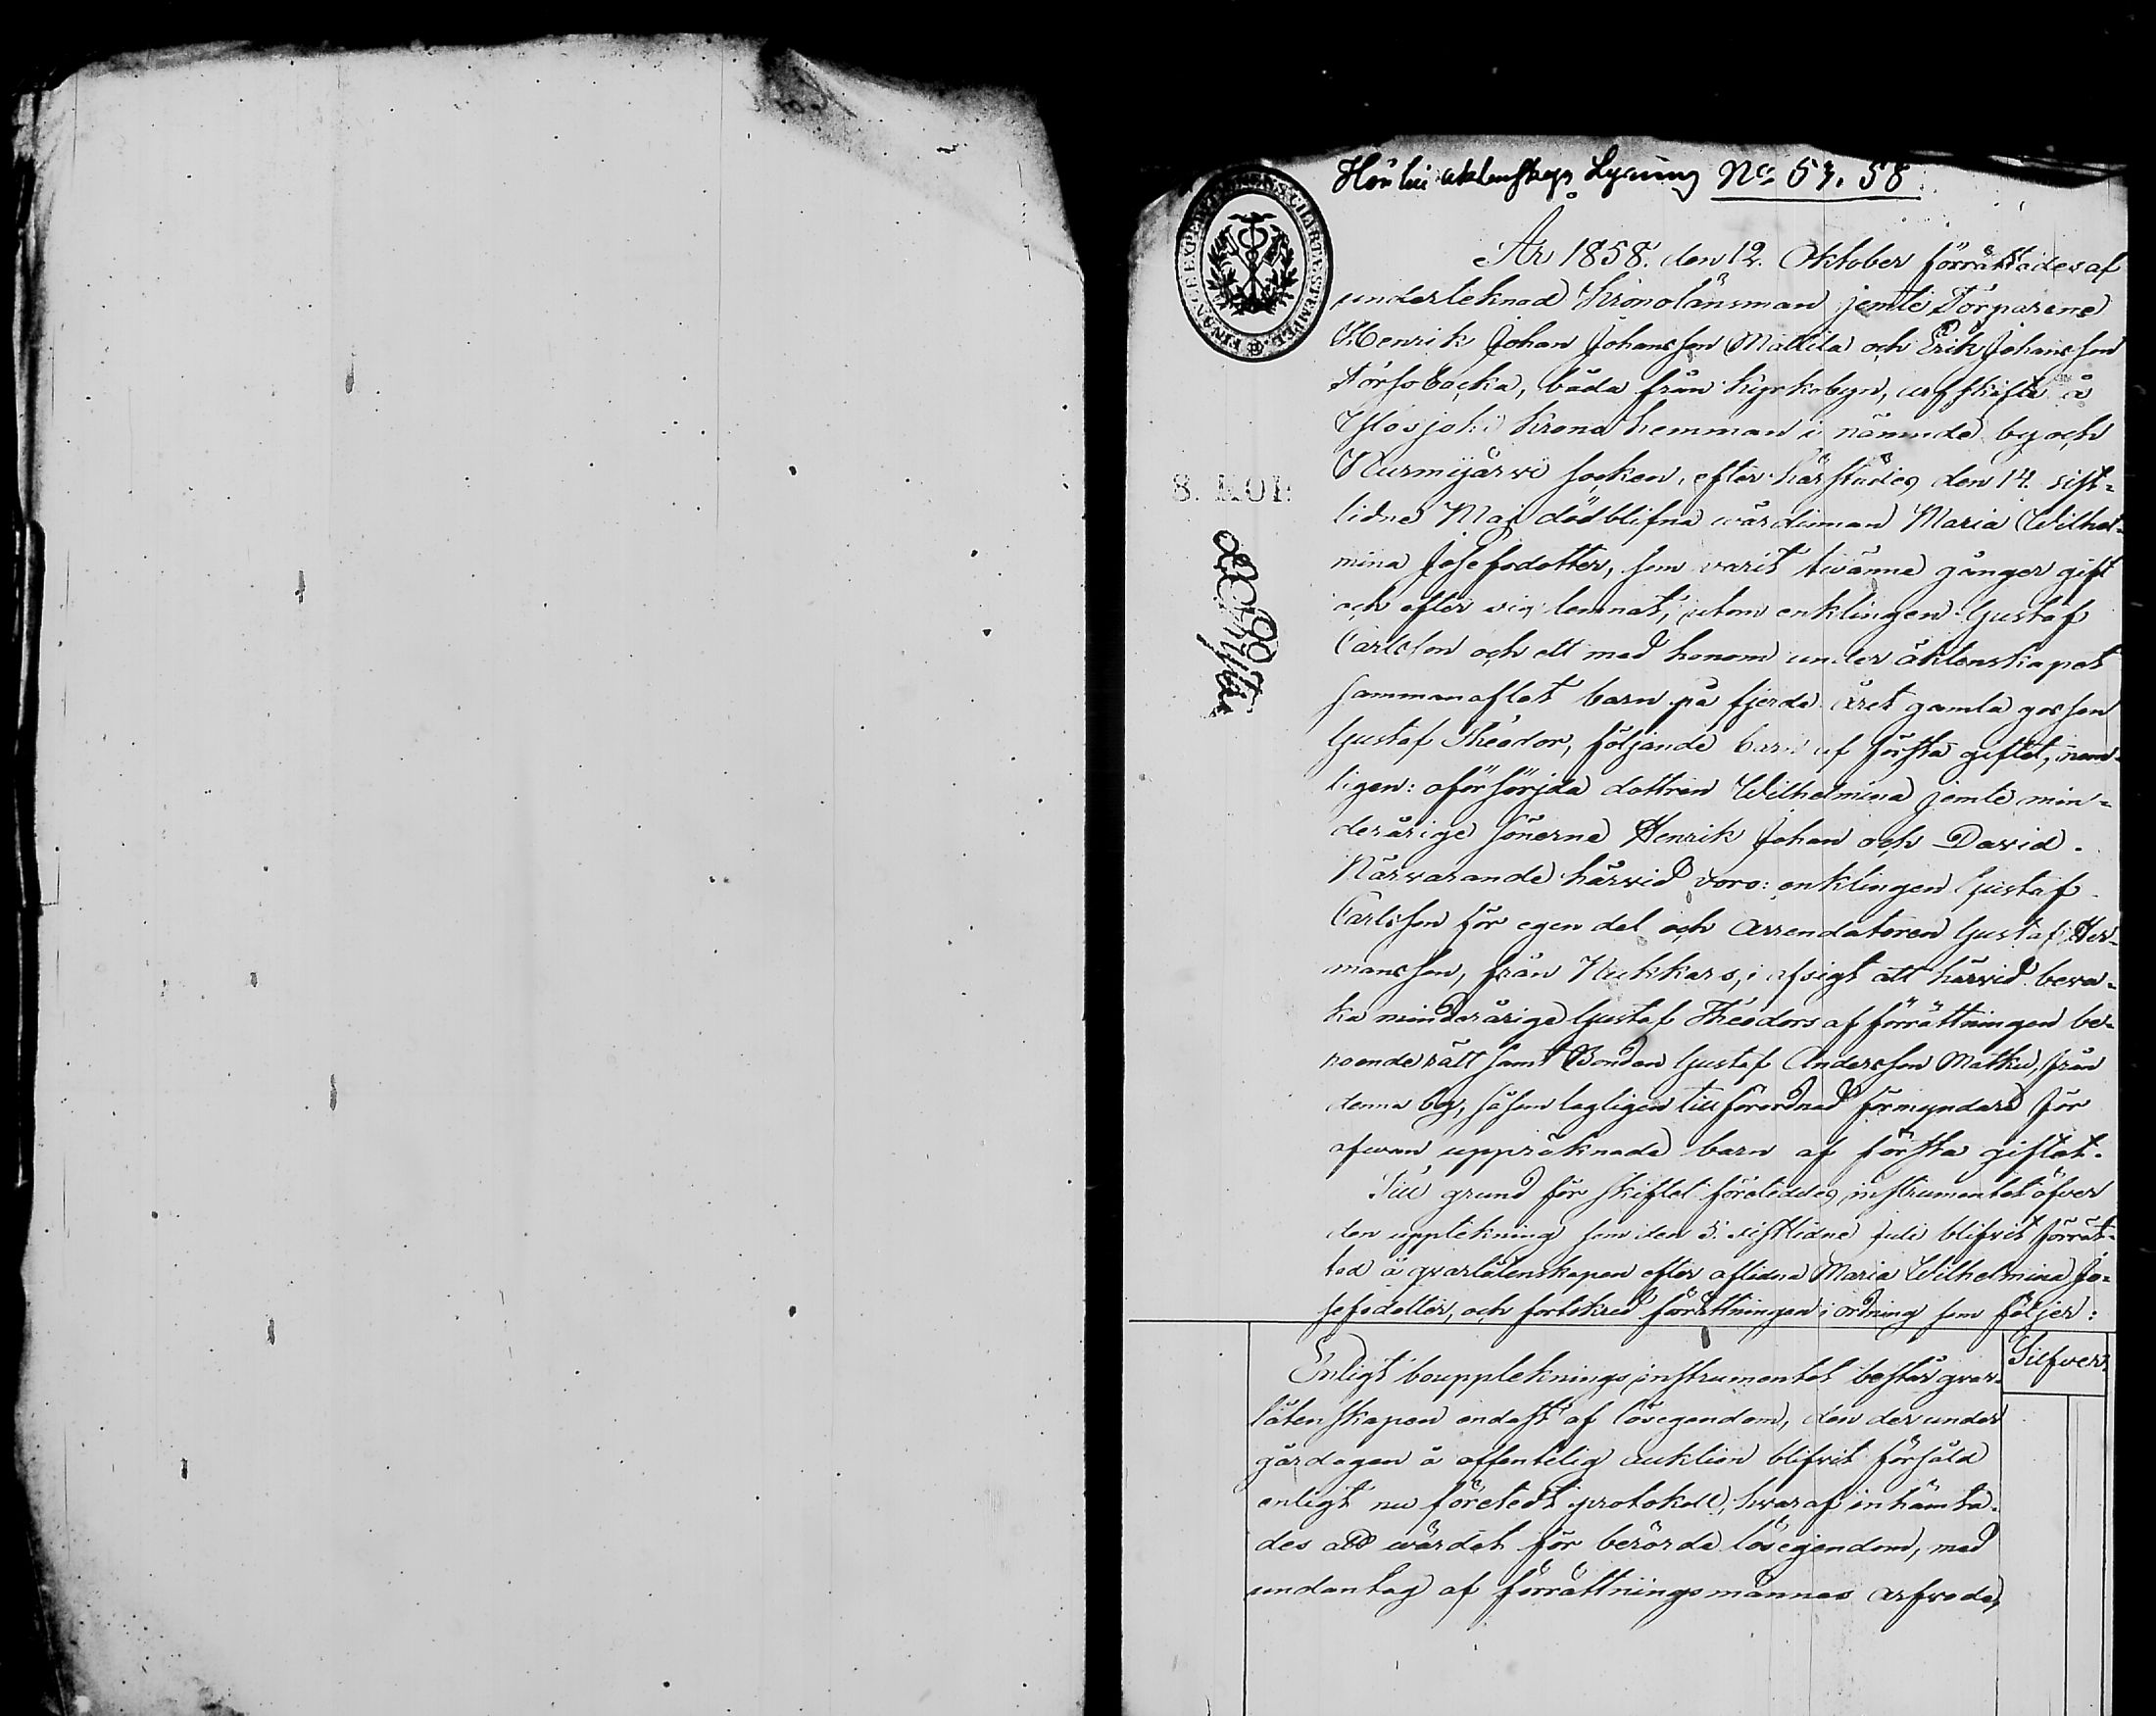 Hör till äktenskaps Lysning No 57. 58
År 1858. den 12. Oktober förrättades af
underteknad Kronolänsman jemte Torparene
Henrik Johan Johansson Mattila och Erik Johansson
Torsobacka, båda från Kyrkobyn, arfskifte å
Ylösjoki Krono hemman i nämnde by och
Nurmijärvi socken, efter härstädes den 14. sist-
lidne Maj dödblifna wärdinnan Maria Wilhel-
mina Josefsdotter, som varit tvänne gånger gift
och efter sig lemnat, utom enklingen Gustaf
Carlsson och ett med honom under äktenskapet
sammanaflat barn på fjerde året gamla gossen
Gustaf Theodor, följande barn af första giftet, nem-
ligen: oförsörjda dottren Wilhelmina jemte min-
derårige sönerne Henrik Johan och David.
Närvarande härvid voro: enklingen Gustaf
Carlsson för egen del och Arrendatoren Gustaf Her-
mansson, från Nukkars, i afsigt att härvid beva-
ka minderårige Gustaf Theodors af förrättningen be-
roende rätt samt Bonden Gustaf Andersson Matku, från
denna by, såsom lagligen tillförordnad förmyndare för
ofvan uppräknade barn af första giftet.
Till grund för skiftet företeddes instrumentet öfver
den upptekning som den 5. sistlidne Juli blifvit förrät-
tad å qvarlåtenskapen efter aflidna Maria Wilhelmina Jo-
sefsdotter, och fortskred förrättningen i ordning som följer:
Silfver.
Enligt boupptekningsinstrumentet består qvar-
låtenskapen endast af lösegendom, den der under
gårdagen å offentelig auktion blifvit försåld
enligt nu företedt protokoll, hvaraf inhämta-
des att wärdet för berörde lösegendom, med
undantag af förrättningsmännes arfvode,
FINANCE EXPEDITIONENS CHARTÆ STEMPEL
8. KOP.